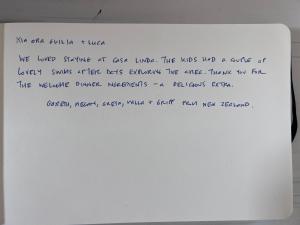 KIA ORA GUILIA + LUCA
WE LOVED STAYING AT CASA LINDA. THE KIDS HAD A COUPLE OF
LOVELY SWIMS AFTER DAYS EXPLORING THE AREA. THANK YOU FOR
THE WELCOME DINNER INGREDIENTS - A DELICIOUS EXTRA.
GARETH, MEGAN, GRETA, + GRIFF FROM NEW ZEALAND.